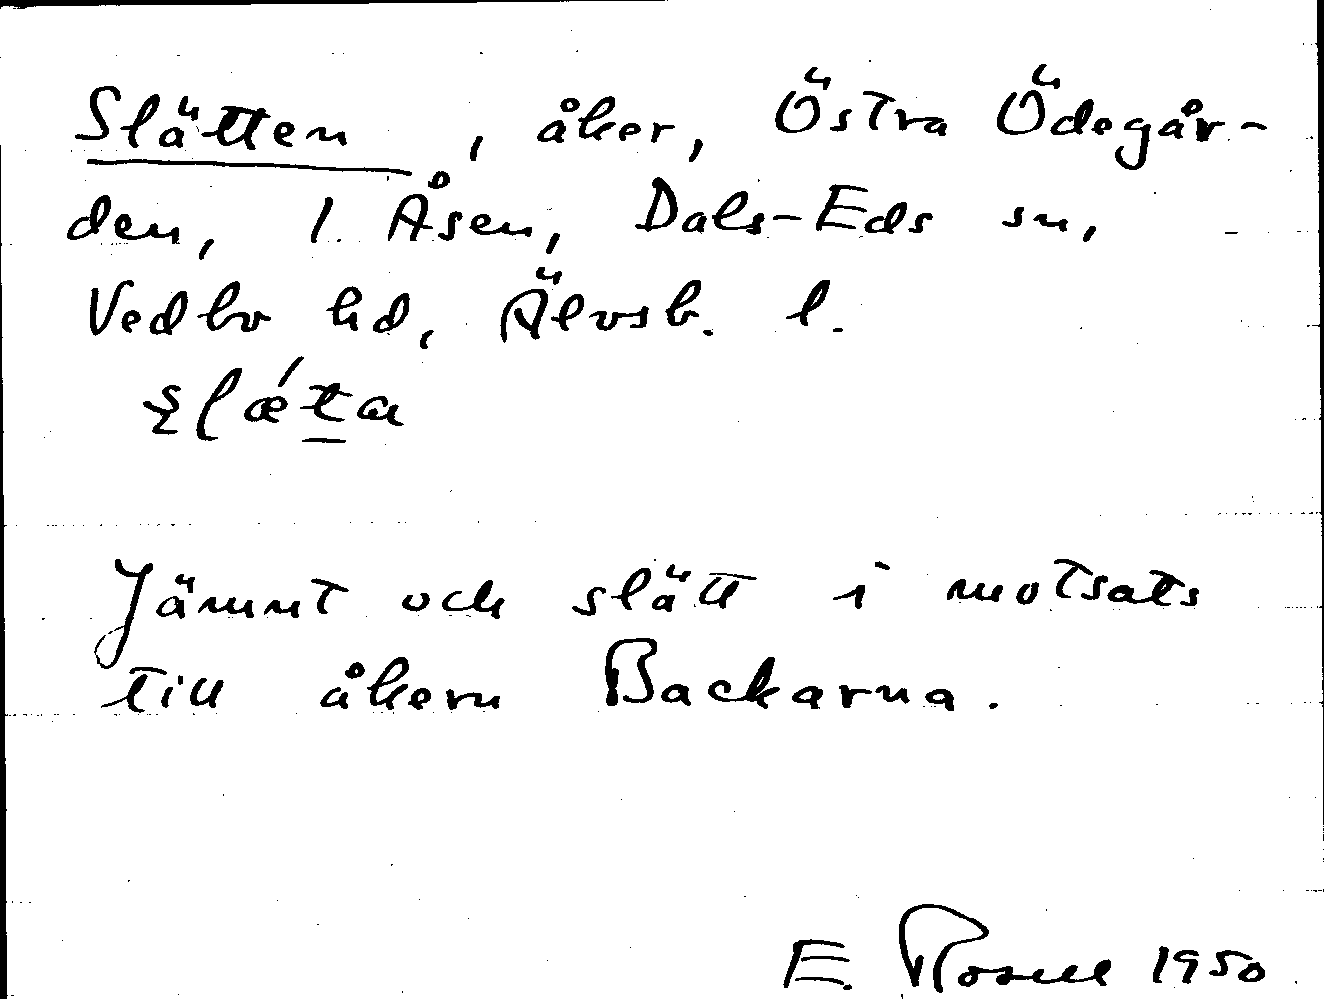 Slätten, åker, Östra Ödegår-
den, 1. Åsen, Dals-Eds sn,
Vedbo hd, Älvsb. l.
Jämnt och slätt i motsats
till åkern Backarna.
E. Rosell 1950